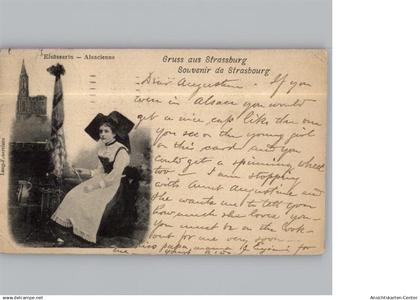 Elsässerin — Alsacienne
Gruss aus Strassburg
Souvenir de Strasbourg
Dear Augustine — If you
were in Alsace you would
get a nice cap like the one
you see on the young girl
on this card and you
could get a spinning wheel
too — I am stopping
with Aunt Augustine and
she wants me to tell you
how much she loves you —
You must be on the look-
out for me very soon —
Kiss papa, mama & for
me
www.ansichtskarten-center.de
Ansichtskarten-Center